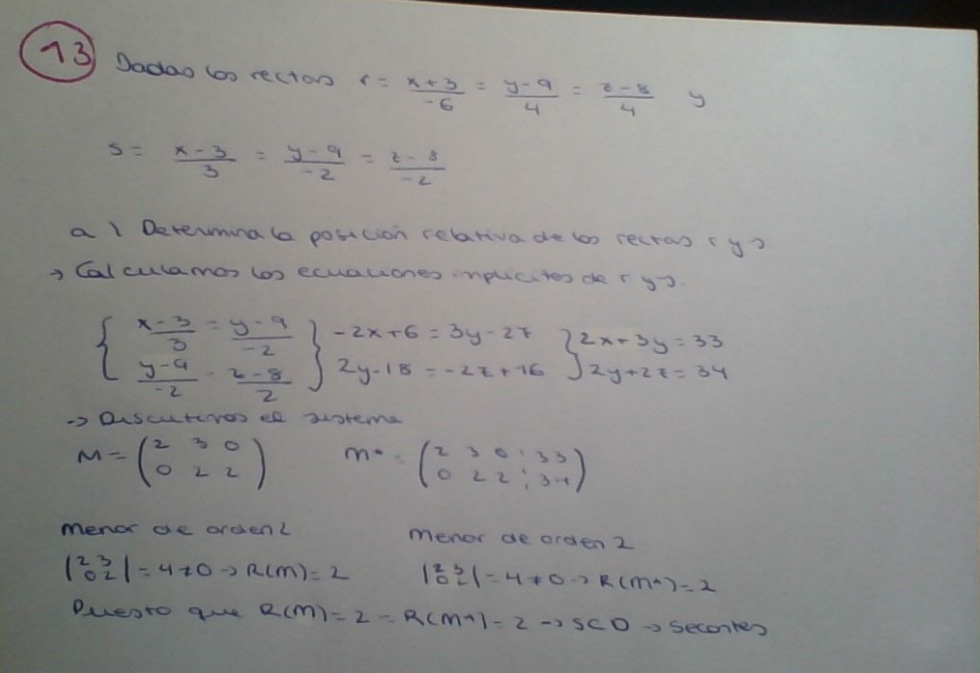 13 Dadas las rectas r = x+3/-6 = y-9/4 = z-8/4 y
s = x-3/3 = y-9/-2 = z-8/-2
a) Determina la posición relativa de las rectas r y s.
→ Calculamos las ecuaciones implicitas de r y s.
{ x-3/3 = y-9/-2 } -2x+6 = 3y-27 } 2x+3y = 33
{ y-9/-2 = z-8/2 } 2y-18 = -2z+16 } 2y+2z = 34
→ Discutimos el sistema
M = (2 3 0 / 0 2 2) M* = (2 3 0 ¦ 33 / 0 2 2 ¦ 34)
Menor de orden 2 Menor de orden 2
|2 3 / 0 2| = 4 ≠ 0 → R(M) = 2 |2 3 / 0 2| = 4 ≠ 0 → R(M*) = 2
Puesto que R(M) = 2 = R(M*) = 2 → SCD → Secantes